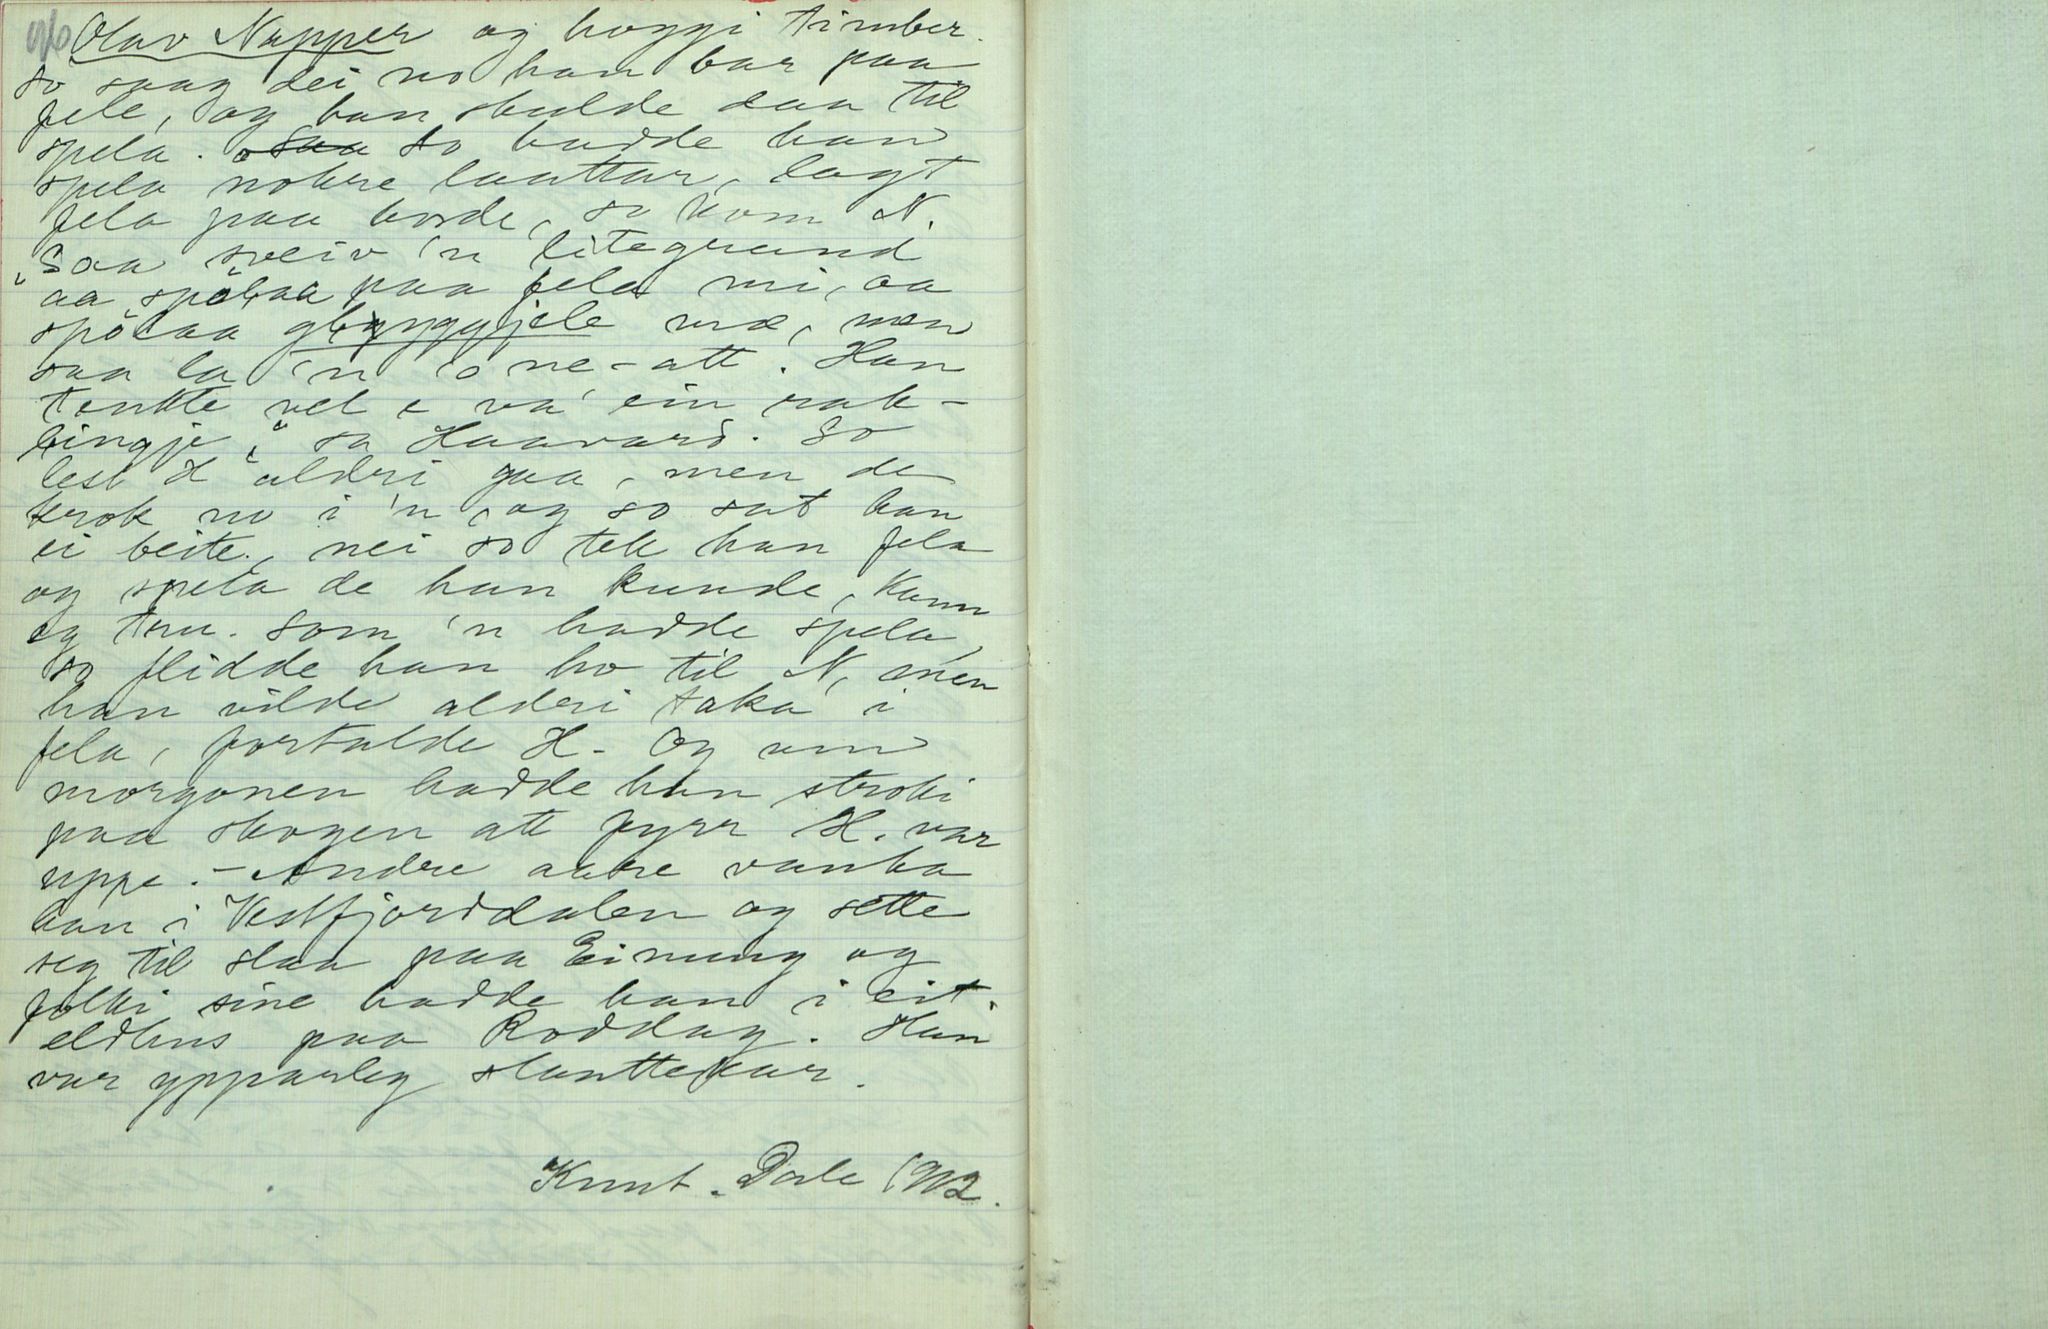 96 Olav Napper og hoggi timber.
so saag dei no han bar paa
fele, og han skulde daa til
spela. so hadde han
spela nokre laattar, lagt
fela paa borde, so kom N.
"Saa sveiv 'n litegrand
aa spölaa paa fela mi, aa
spölaa me, men
saa la 'n 'o ne-att. Han
tenkte vel e va' ein rak-
lingje," sa Haavard. So
lest H aldri gaa, men de
krok no i 'n, og so sat han
ei beite, nei so tek han fela
og spela de han kunde, kann
eg tru. Som 'n hadde spela,
so flidde han ho til N, men
han vilde aldri taka i
fela, fortalde H. Og um
morgonen hadde han stroki
paa skogen att fyrr H. var
uppe. - Andre aare vanka
han i Vestfjorddalen og sette
seg til slaa paa Einung og
folki sine hadde han i eit
eldhus paa Roddag. Han
var ypparleg slaattekar.
Knut Dale 1912.